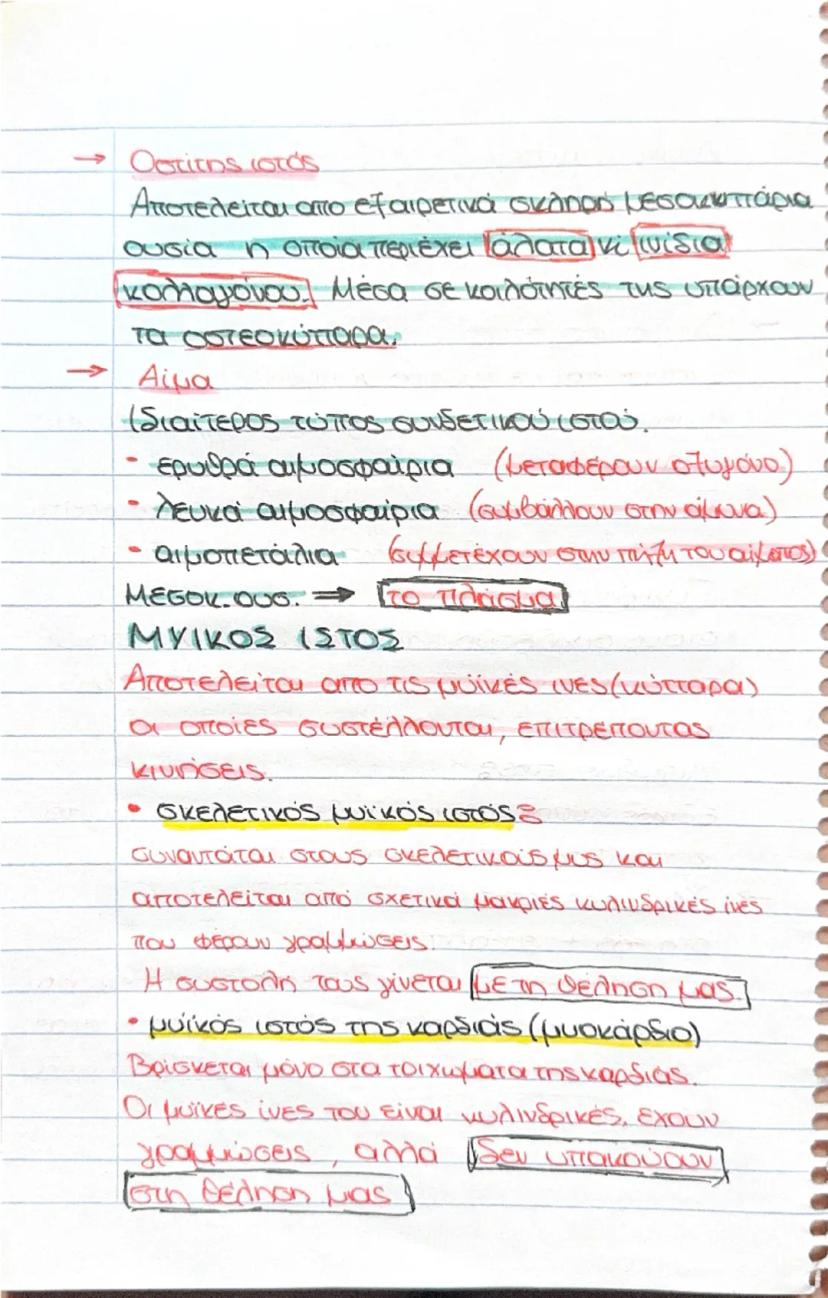 → Οστίτης ιστός
Αποτελείται απο εξαιρετικά σκληρή μεσοκυττάρια
ουσία η οποία περιέχει άλατα κ ινίδια
κολλαγόνου. Μέσα σε κοιλότητές της υπάρχουν
τα οστεοκύτταρα.
→ Αίμα
Ιδιαίτερος τύπος συνδετικού ιστού.
• ερυθρά αιμοσφαίρια (μεταφέρουν οξυγόνο)
• λευκά αιμοσφαίρια (συμβάλλουν στην άμυνα)
• αιμοπετάλια (συμμετέχουν στην πήξη του αίματος)
Μεσοκ. ουσ. ⇒ το πλάσμα
ΜΥΙΚΟΣ ΙΣΤΟΣ
Αποτελείται απο τις μυϊκές ινες (κύτταρα)
οι οποίες συστέλλονται, επιτρεποντας
κινήσεις.
• σκελετικός μυϊκός ιστός:
συναντάται στους σκελετικούς μυς και
αποτελείται από σχετικά μακριές κυλινδρικές ίνες
που φέρουν γραμμώσεις.
Η συστολή τους γίνεται με τη θέληση μας.
• μυϊκός ιστός της καρδιάς (μυοκάρδιο)
Βρίσκεται μόνο στα τοιχώματα της καρδιάς.
Οι μυϊκές ίνες του είναι κυλινδρικές, έχουν
γραμμώσεις, αλλά δεν υπακούουν
στη θέληση μας